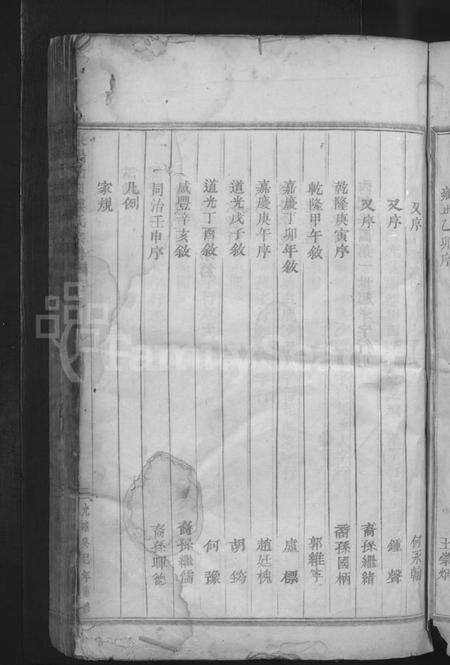 雍正乙卯序
又序 何承翰
又序 鍾聲
又序 裔孫繼緒
乾隆庚寅序 裔孫國柄
乾隆甲午敘 郭維
嘉慶丁卯年敘 盧標
嘉慶庚午序 趙廷槐
道光戊子敘 胡筠
道光丁酉敘 何豫
咸豐辛亥敘 裔孫繼儒
同治壬申序 裔孫德
凡例
家規
FamilySearch